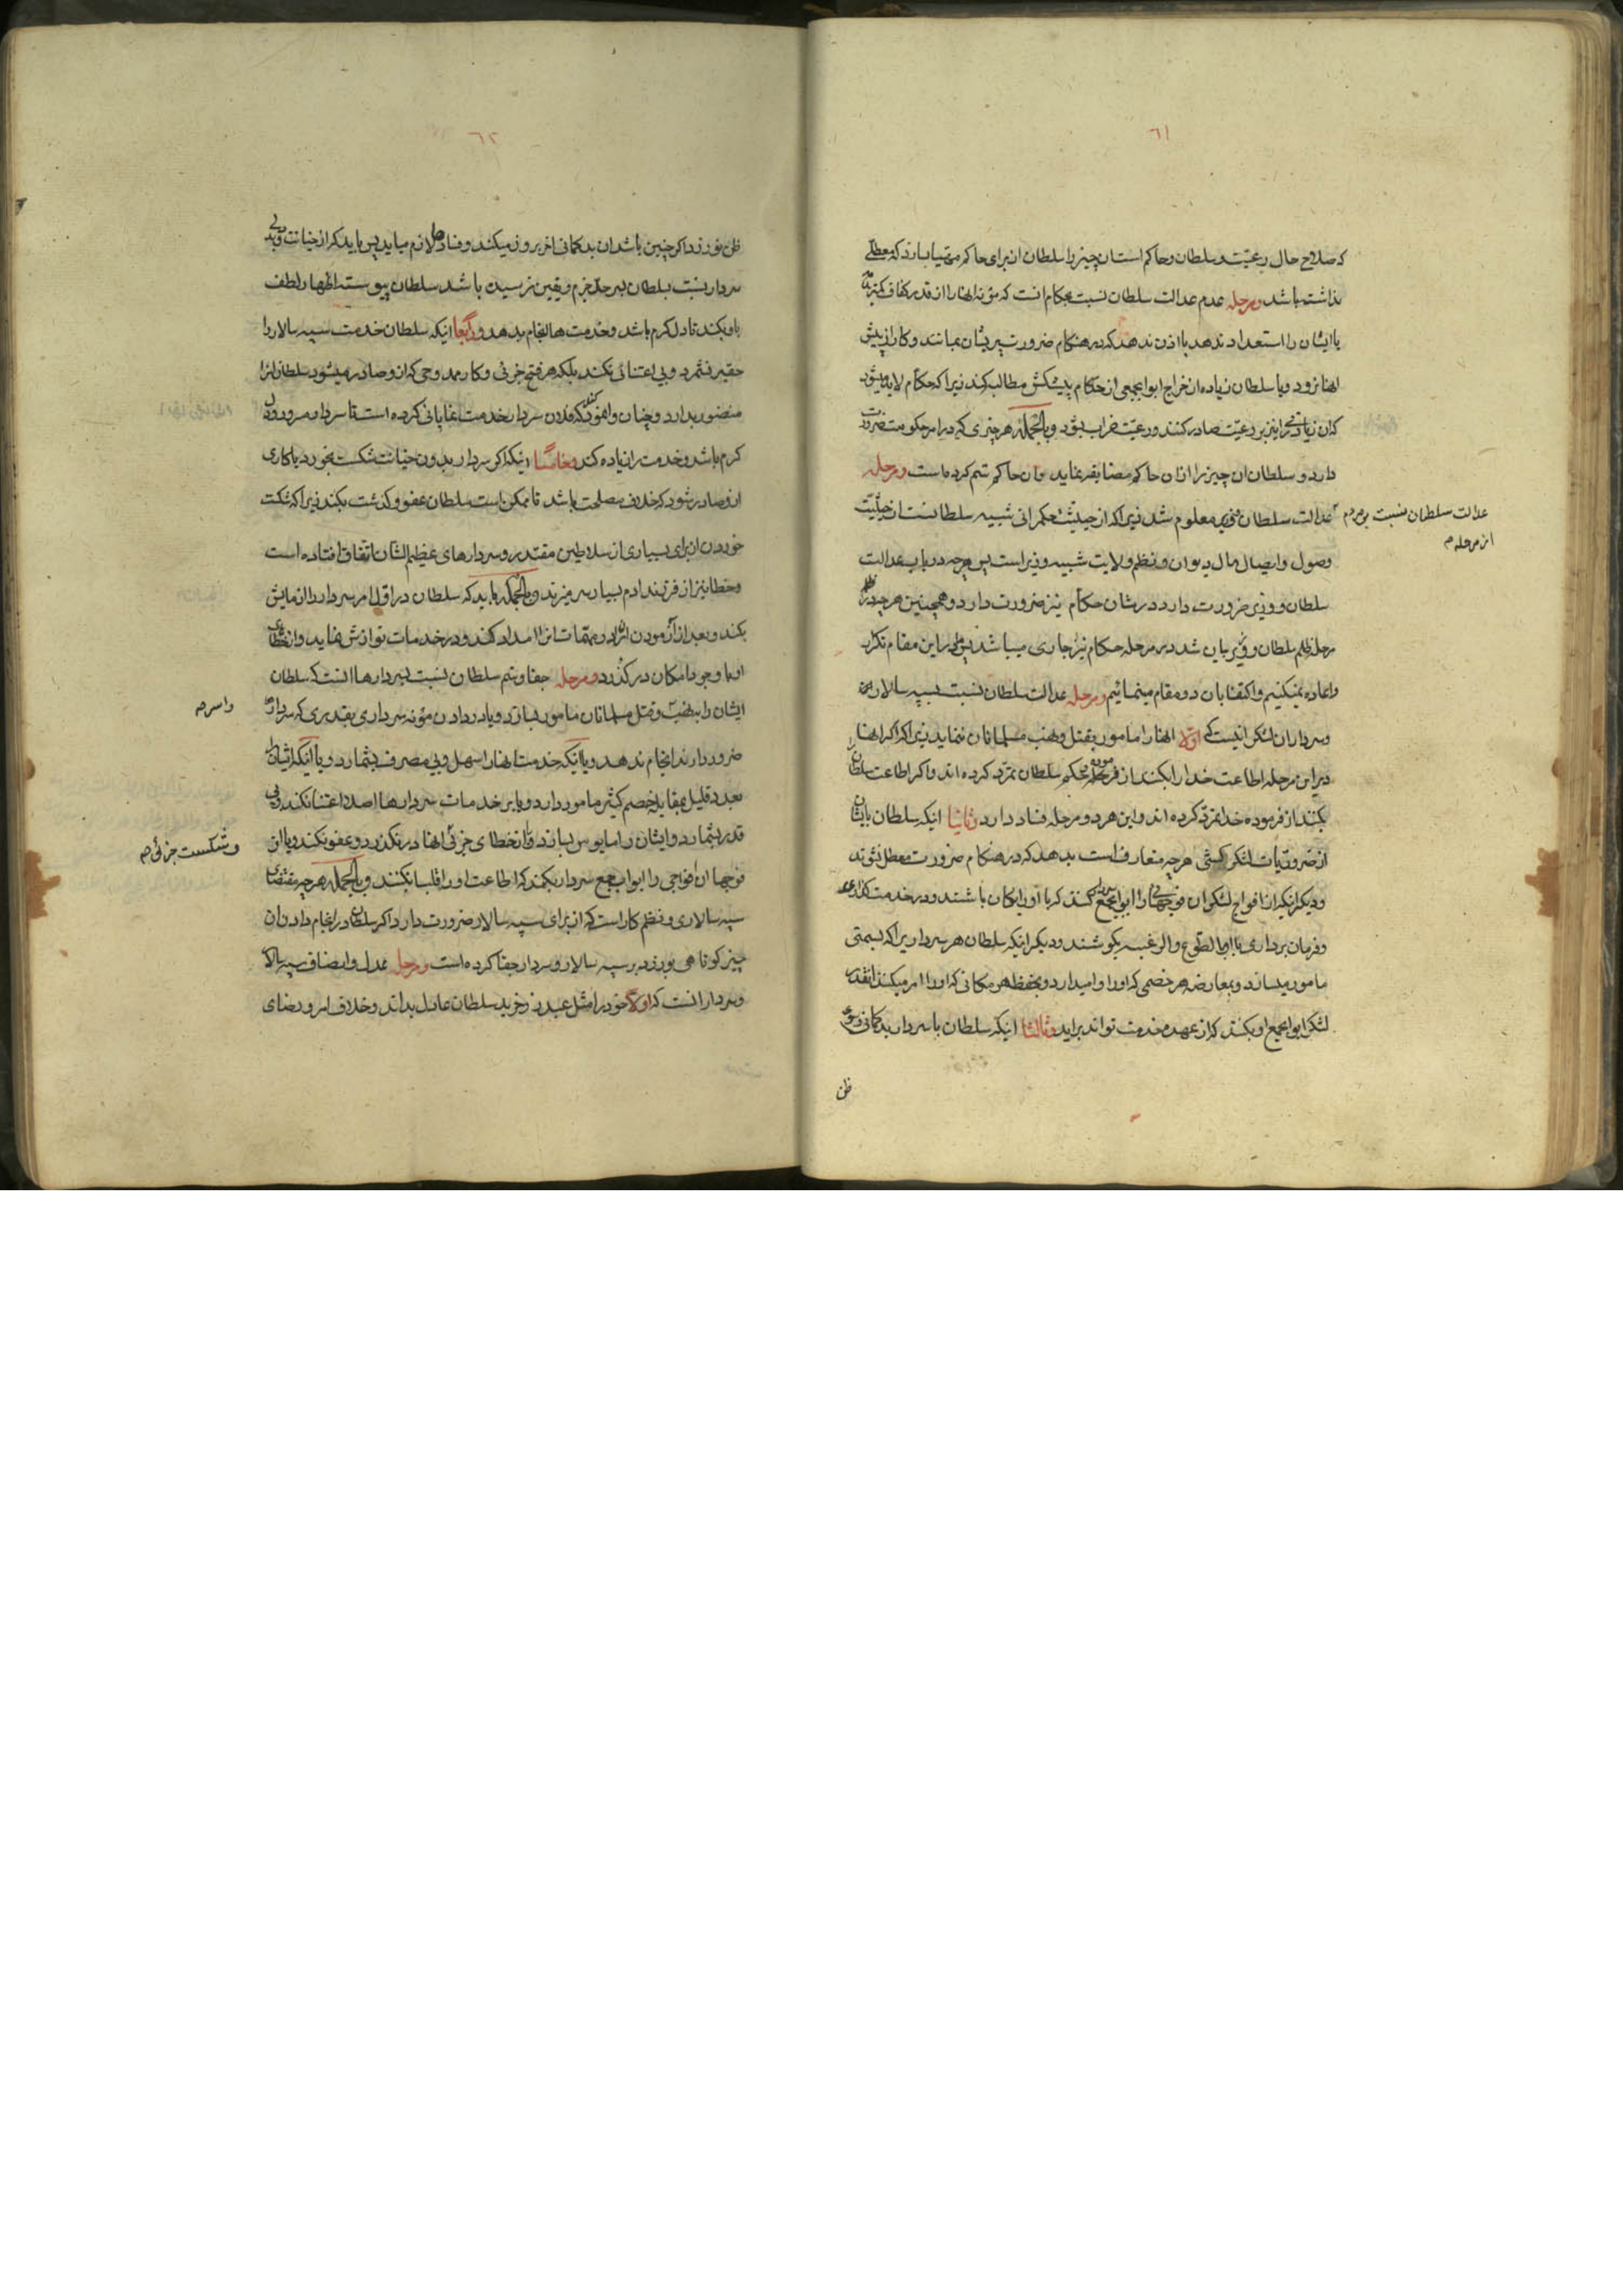 ٦١
که صلاح حال رعیّت و سلطان و حاکم است ان چیز را سلطان از برای حاکم مهیا بسازد که معطلی
نداشته باشد و مرحله عدم عدالت سلطان نسبت بحکام انست که مؤنه انها را از قدر کفاف کمتر
یا ایشان را استعداد ندهد یا اذن ندهد که در هنکام ضرورت پریشان بمانند و کار از پیش
انها نرود و یا سلطان زیاده از خراج ابوابجمعی از حکام پیشکش مطالبه کند زیرا که حکام لابد میشود
که ان زیادتی را نیز بر رعیّت صادر کنند و رعیّت خراب بشود و بالجمله هر چیزی که در امر حکومت ضرورت
دارد و سلطان ان چیز را از ان حاکم مضایقه نماید بان حاکم ستم کرده است و مرحله
عدالت سلطان نسبت بمردم از مرحله
عدالت سلطان و وزیر معلوم شد زیرا که از حیثیّت حکمرانی شبیه سلطانست از حیثیّت
وصول و ایصال مال دیوان و نظم ولایت شبیه وزیر است پس هر چه در باب عدالت
سلطان و وزیر ضرورت دارد در شان حکام نیز ضرورت دارد و همچنین هر چه در
مرحله ظلم سلطان و وزیر بیان شد در مرحله حکام نیز جاری میباشد پس ما در این مقام تکرار
و اعاده نمیکنیم و اکتفا بان دو مقام مینمائیم و مرحله عدالت سلطان نسبت بسپه سالاران
و سرداران لشکر انیست که اوّلا انها را مامور بقتل و نهب مسلمانان ننماید زیرا که اکر انها
در این مرحله اطاعت خدا را بکنند از فرموده و حکم سلطان تمرّد کرده اند و اکر اطاعت سلطان
بکنند از فرموده خدا تمرّد کرده اند و این هر دو مرحله فساد دارد و ثانیا اینکه سلطان بایشان
از ضروریّات لشکر کشی هر چه متعارف است بدهد که در هنکام ضرورت معطل نشوند
و دیکر اینکه از افواج لشکر ان فوجها را ابوابجمع سردار کند که با او یکان باشند و در خدمت کذاری
و فرمان برداری با او بالطوع و الرغبه بکوشند و دیکر اینکه سلطان هر سرداریرا که بسمتی
مامور میسازد و بمعارضه هر خصمی که او را وامیدارد و بحفظ هر مکانی که او را امر میکند انقدر
لشکر ابوابجمع او بکند که از عهده خدمت تواند براید و ثالثا اینکه سلطان با سردار بدکمانی و سوء
ظن
٦٢
ظن نورزد اکر چنین باشد ان بدکمانی اخر بروز میکند و فساد ها لازم میاید پس باید که از خیانت و بدی
سردار نسبت بسلطان بسر حدّ جزم و یقین نرسیده باشد سلطان پیوسته اظهار لطف
باو بکند تا دل کرم باشد و خدمت ها انجام بدهد و رابعا اینکه سلطان خدمت سپه سالار را
حقیر نشمرد و بی اعتنائی نکند بلکه هر فتح جزئی و کار ممدوحی که از او صادر میشود سلطان انرا
منظور بدارد و چنان وانمود کند که فلان سردار خدمت نمایانی کرده است تا سردار مسرور و دل
کرم باشد و خدمت را زیاده کند و خامسا اینکه اکر سردار بدون خیانت شکست بخورد یا کاری
از او صادر شود که خلاف مصلحت باشد تا ممکن است سلطان عفو و کذشت بکند زیرا که شکست
خوردن از برای بسیاری از سلاطین مقتدر و سردارهای عظیم الشان اتفاق افتاده است
و خطا نیز از فرزند ادم بسیار سر میزند و بالجمله باید که سلطان در اوّل امر سردار را ازمایش
بکند و بعد از آزمودن او را در مهمّات انرا امداد کند و در خدمات نوازش نماید و از خطای
او با وجود امکان در کذرد و مرحله جفا و ستم سلطان نسبت بسردارها انست که سلطان
ایشان را بنهب و قتل مسلمانان مامور بسازد و یا در دادن مؤنه سرداری بقدری که سردار
و اسر صح
ضرور دارند انجام ندهد و یا آنکه خدمت انها را سهل و بی مصرف بشمارد و یا آنکه ایشان را
بعدد قلیل بمقابله خصم کثیر مامور دارد و یا بر خدمات سردارها اصلا اعتنا نکند و بی
قدر بشمارد و ایشان را مایوس بسازد و از خطای جزئی انها در نکذرد و عفو نکند و یا ان
و شکست جزئی صح
فوجها ان افواجی را ابواب جمع سردار بکند که اطاعت او را قلبا نکنند و بالجمله هر چه مقتضای
سپه سالاری و نظم کار است که از برای سپه سالار ضرورت دارد اکر سلطان در انجام دادن ان
چیز کوتاهی بورزد بر سپه سالار و سردار جفا کرده است و مرحله عدل و انصاف سپه سالار
و سردار انست که اولا خود را مثل عبد زر خرید سلطان عادل بداند و خلاف امر و رضای